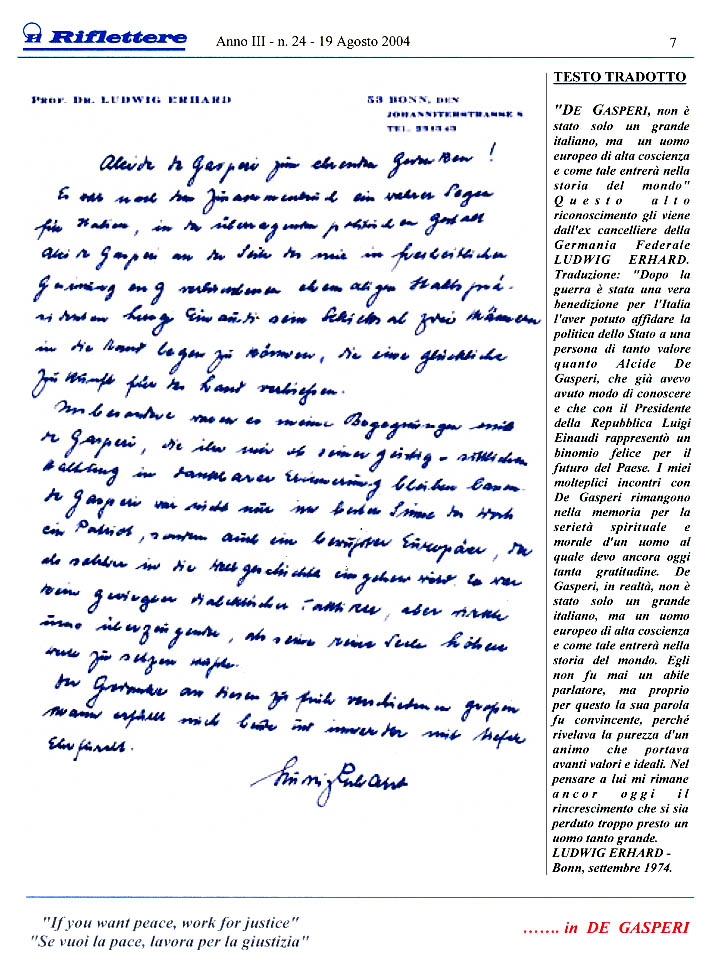 Il Riflettere
Anno III - n. 24 - 19 Agosto 2004
7
PROF. DR. LUDWIG ERHARD
53 BONN, DEN
JOHANNITERSTRASSE 8
TEL.
Alcide de Gasperi zum ehrenden Gedenken!
Es war nach dem Zusammenbruch ein wahrer Segen
für Italien, in der überragenden politischen Gestalt
Alcide Gasperi an der Seite des mir in freiheitlicher
Gesinnung eng verbundenen ehemaligen Staatsprä-
sidenten Luigi Einaudi sein Schicksal zwei Männern
in die Hand legen zu können, die eine glückliche
Zukunft für das Land verhießen.
Insbesondere waren es meine Begegnungen mit
de Gasperi, die ihn mir ob seiner geistig-sittlichen
Haltung in dankbarer Erinnerung bleiben lassen.
de Gasperi war nicht nur im besten Sinne des Worts
ein Patriot, sondern auch ein bewußter Europäer, der
als solcher in die Weltgeschichte eingehen wird. Es war
kein gewiegter dialektischer Taktiker, aber wirkte
umso überzeugender, als seine reine Seele höhere
zu setzen wußte.
Der Gedanke an diesen zu früh verschiedenen großen
Mann erfüllt mich heute und immerdar mit tiefer
Ehrfurcht.
Ludwig Erhard
TESTO TRADOTTO
"DE GASPERI, non è
stato solo un grande
italiano, ma un uomo
europeo di alta coscienza
e come tale entrerà nella
storia del mondo"
Questo alto
riconoscimento gli viene
dall'ex cancelliere della
Germania Federale
LUDWIG ERHARD.
Traduzione: "Dopo la
guerra è stata una vera
benedizione per l'Italia
l'aver potuto affidare la
politica dello Stato a una
persona di tanto valore
quanto Alcide De
Gasperi, che già avevo
avuto modo di conoscere
e che con il Presidente
della Repubblica Luigi
Einaudi rappresentò un
binomio felice per il
futuro del Paese. I miei
molteplici incontri con
De Gasperi rimangono
nella memoria per la
serietà spirituale e
morale d'un uomo al
quale devo ancora oggi
tanta gratitudine. De
Gasperi, in realtà, non è
stato solo un grande
italiano, ma un uomo
europeo di alta coscienza
e come tale entrerà nella
storia del mondo. Egli
non fu mai un abile
parlatore, ma proprio
per questo la sua parola
fu convincente, perché
rivelava la purezza d'un
animo che portava
avanti valori e ideali. Nel
pensare a lui mi rimane
ancor oggi il
rincrescimento che si sia
perduto troppo presto un
uomo tanto grande.
LUDWIG ERHARD -
Bonn, settembre 1974.
"If you want peace, work for justice"
"Se vuoi la pace, lavora per la giustizia"
....... in DE GASPERI